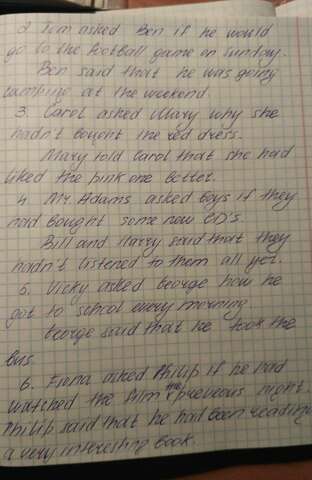 2. Tom asked Ben if he would
go to the football game on Sunday.
Ben said that he was going
camping at the weekend.
3. Carol asked Mary why she
hadn't bought the red dress.
Mary told Carol that she had
liked the pink one better.
4. Mr. Adams asked boys if they
had bought some new CD's.
Bill and Harry said that they
hadn't listened to them all yet.
5. Vicky asked George how he
got to school every morning
George said that he took the
bus
6. Fiona asked Philip if he had
watched the film the preveous night.
Philip said that he had been reading
a very interesting book.